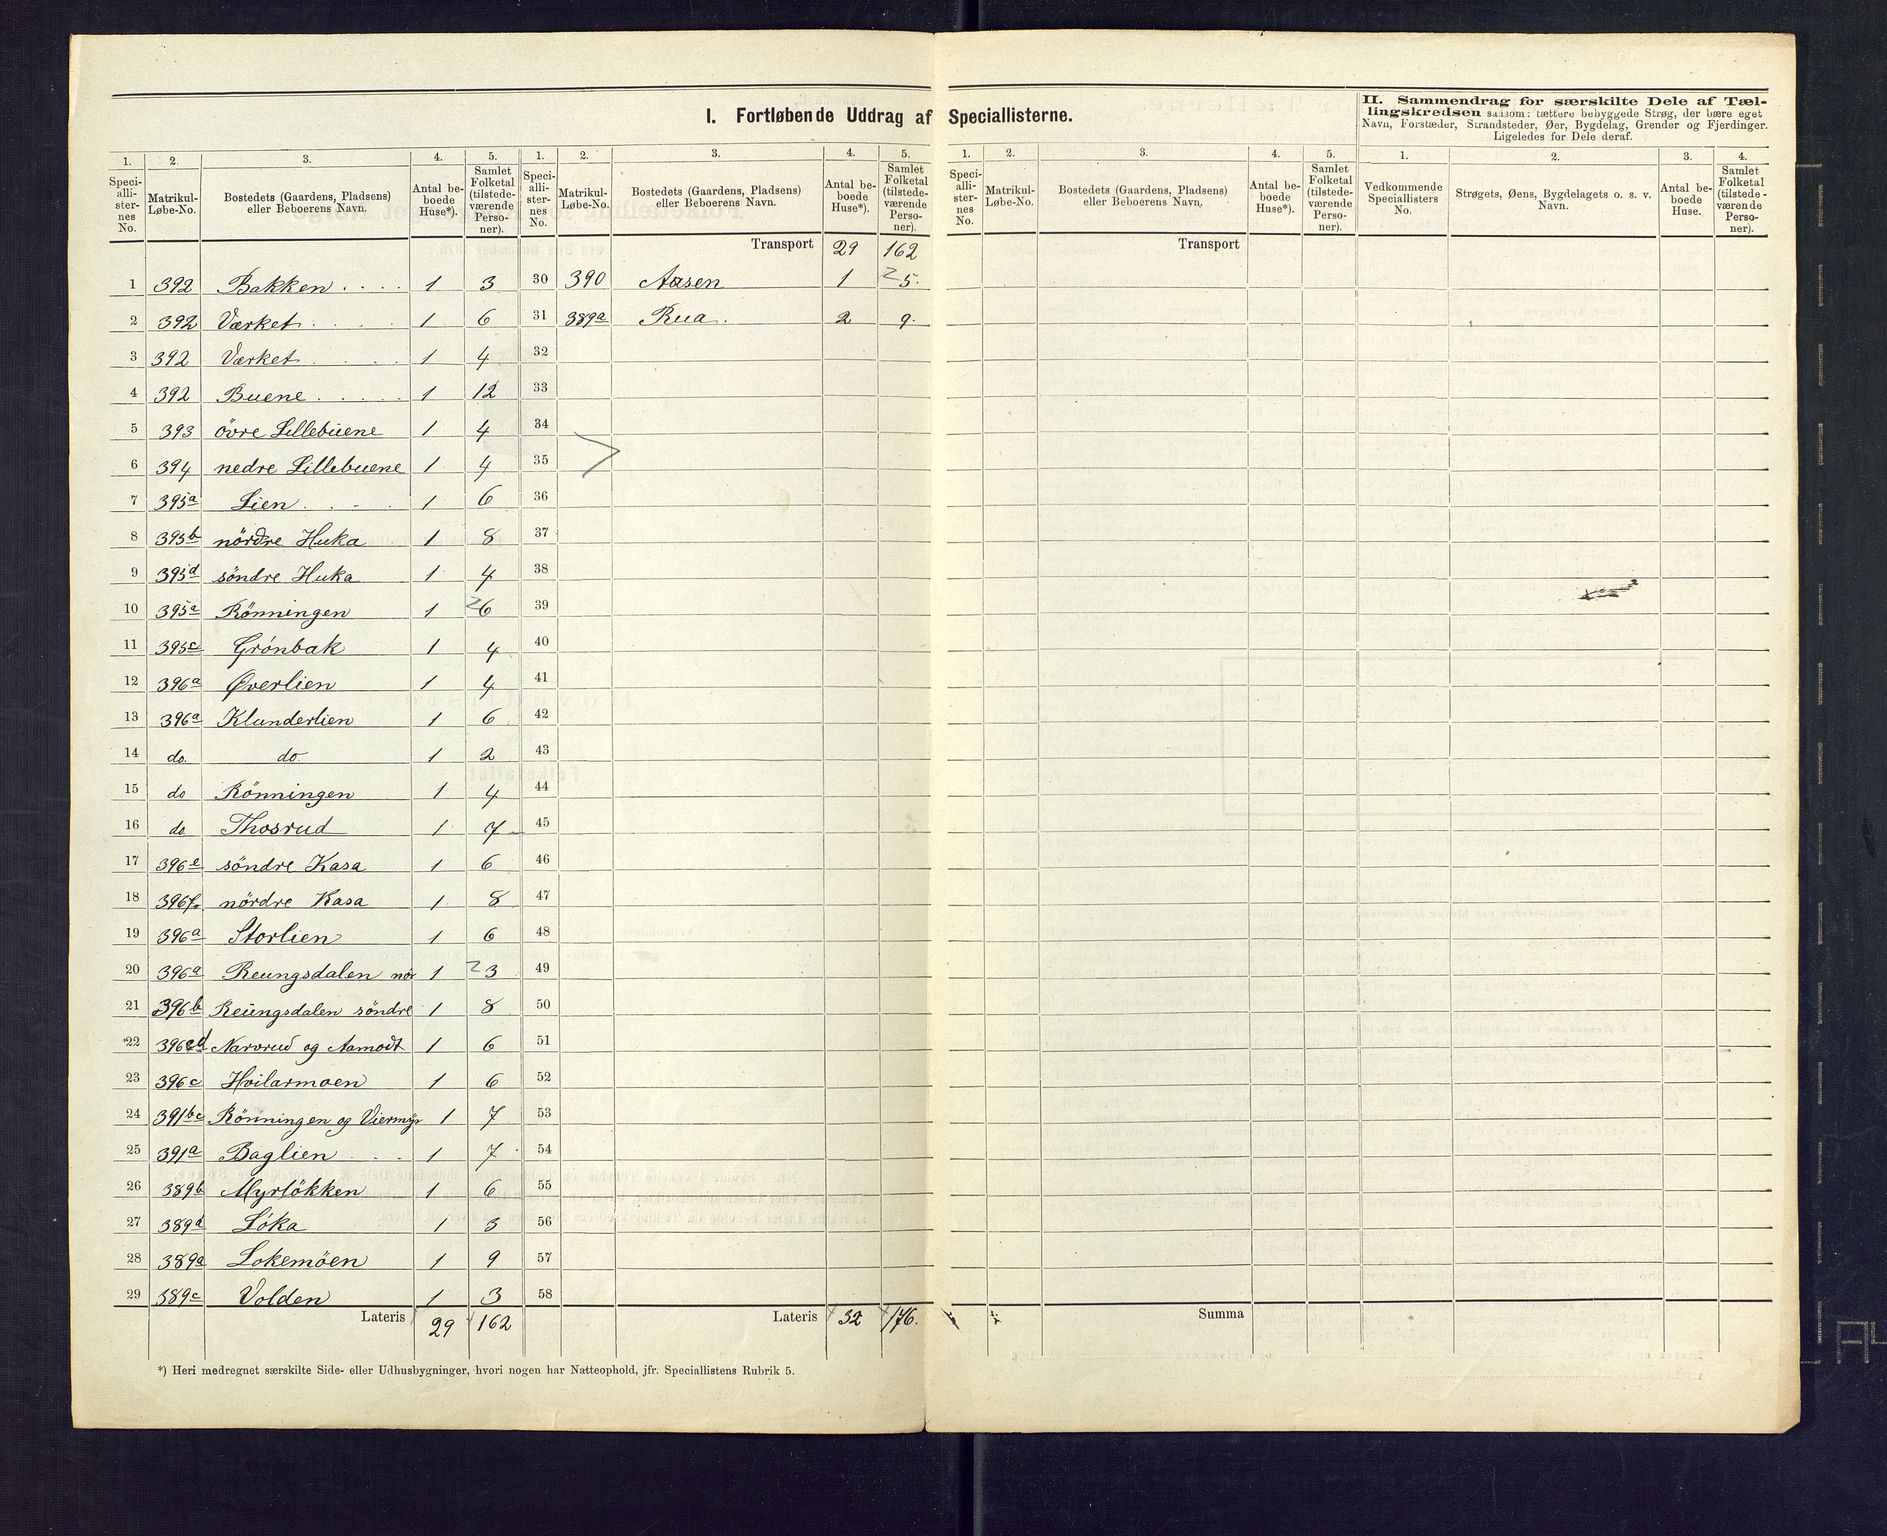 I. Fortløbende Uddrag af Speciallisterne.
II. Sammendrag for særskilte Dele af Tæl-
lingskredsen saasom: tættere bebyggede Strøg, der bære eget
Navn, Forstæder, Strandsteder, Øer, Bygdelag, Grender og Fjerdinger.
Ligeledes for Dele deraf.
1. 2. 3. 4. 5. 1. 2. 3. 4. 5. 1. 2. 3. 4. 5. 1. 2. 3. 4.
Speci-allister-nes No. Matrikul-Løbe-No. Bostedets (Gaardens, Pladsens) eller Beboerens Navn. Antal be-boede Huse*). Samlet Folketal (tilstede-værende Perso-ner).
Speci-alli-ster-nes No. Matrikul-Løbe-No. Bostedets (Gaardens, Pladsens) eller Beboerens Navn. Antal be-boede Huse*). Samlet Folketal (tilstede-værende Perso-ner).
Speci-alli-ster-nes No. Matrikul-Løbe-No. Bostedets (Gaardens, Pladsens) eller Beboerens Navn. Antal be-boede Huse*). Samlet Folketal (tilstede-værende Perso-ner).
Vedkommende Speciallisters No. Strøgets, Øens, Bygdelagets o. s. v. Navn. Antal be-boede Huse. Samlet Folketal (tilstede-værende Perso-ner).
Transport 29 162 Transport
1 392 Bakken . . . . 1 3 30 390 Aasen 1 2 5.
2 392 Værket . . . 1 6 31 389a Rua . 2 9.
3 392 Værket . . . 1 4 32
4 392 Buene . . . . 1 12 33
5 393 övre Lillebuene 1 4 34
6 394 nedre Lillebuene 1 4 35
7 395a Lien . . . 1 6 36
8 395b nördre Huka . 1 8 37
9 395d söndre Huka 1 4 38
10 395a Rönningen 1 2 6 39
11 395c Grönbak 1 4 40
12 396a Øverlien 1 4 41
13 396a Klunderlien 1 6 42
14 do. do. 1 2 43
15 do Rönningen 1 4 44
16 do Thosrud 1 7 45
17 396e söndre Kasa 1 6 46
18 396f. nördre Kasa 1 8 47
19 396a Storlien 1 6 48
20 396a Reungsdalen nör 1 2 3 49
21 396b Reungsdalen söndre 1 8 50
22 396d Narvrud og Aamodt 1 6 51
23 396c Hvilarmoen 1 6 52
24 391bc Rönningen og Viermyr 1 7 53
25 391a Baglien . . . 1 7 54
26 389b Myrlökken 1 6 55
27 389d Löka 1 3 56
28 389a Lokemöen 1 9 57
29 389c Volden 1 3 58
Lateris 29 162 Lateris 32 176. Summa
*) Heri medregnet særskilte Side- eller Udhusbygninger, hvori nogen har Natteophold, jfr. Speciallistens Rubrik 5.